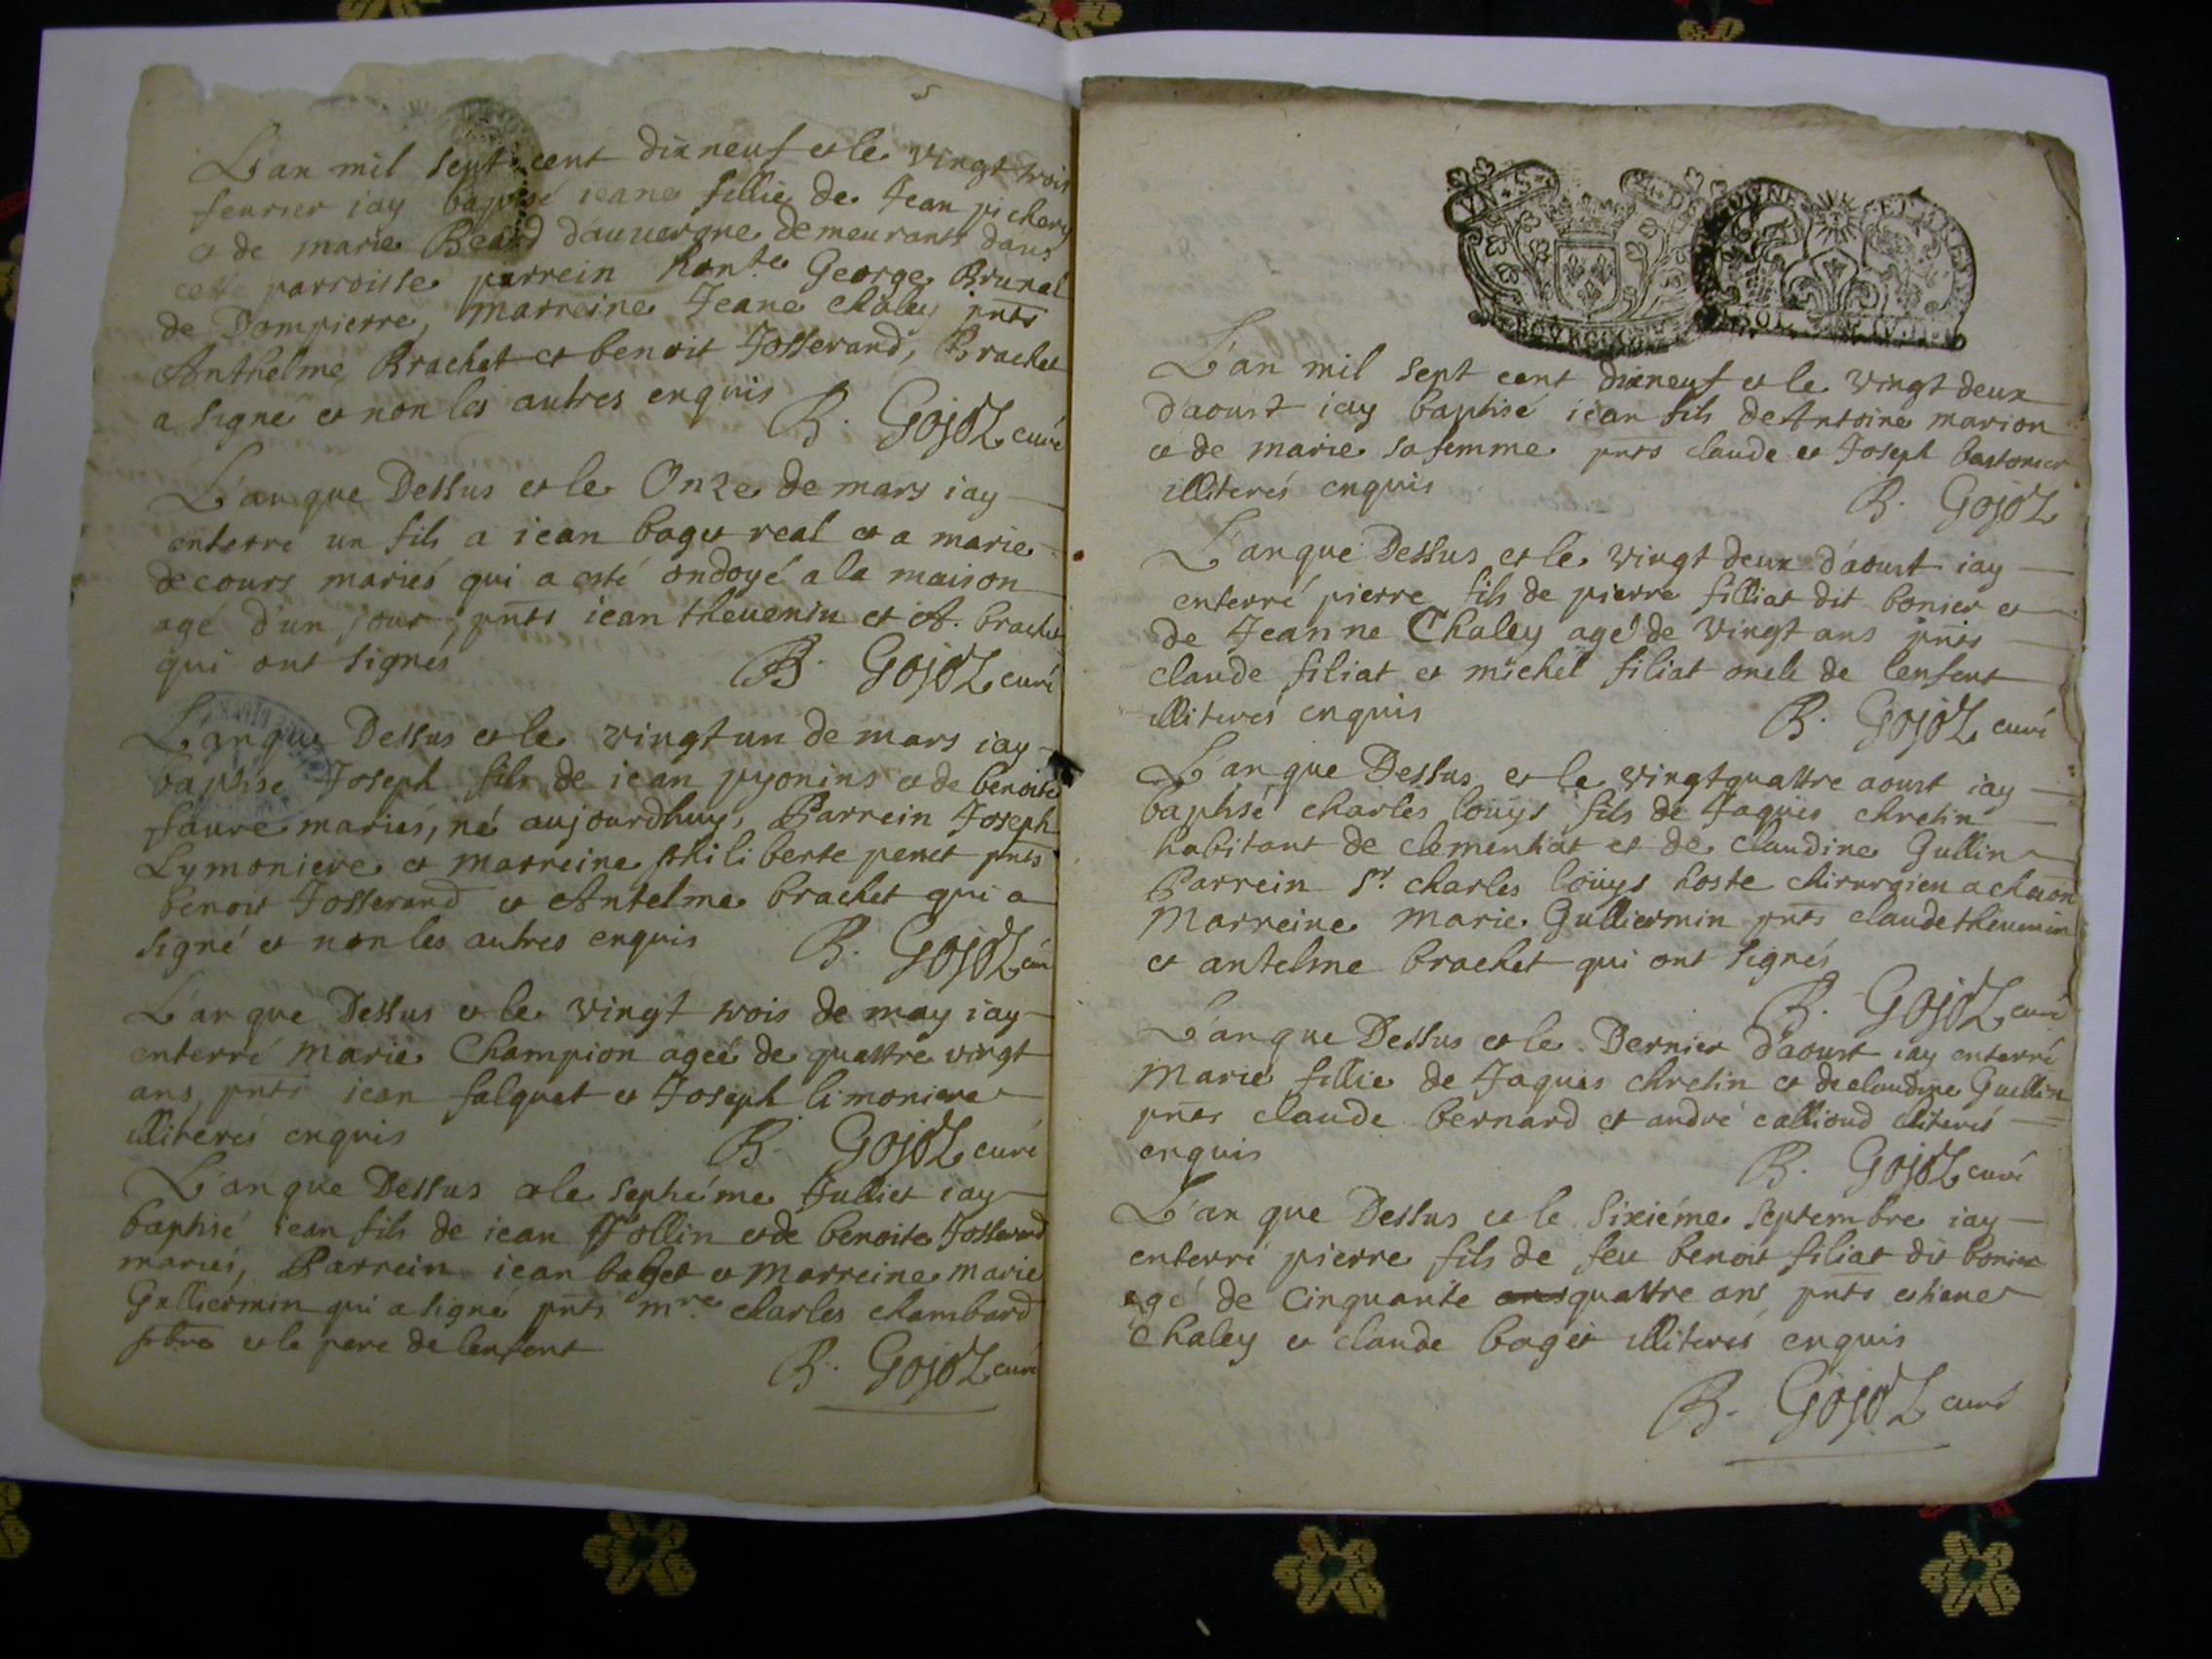 L'an mil sept cent dixneuf et le vingt trois
feurier iay baptisé ieane fillie de Jean pichery
et de marie Beard d'auuergne demeurants dans
cette parroisse parrein hon.te George Brunel
de Dompierre, marreine Jeane chaley pnts
Anthelme Brachet et benoit Josserand, Brachet
a signé et non les autres enquis
B. Gojoz curé
L'an que Dessus et le Onze de mars iay
enterré un fils a iean baget real et a marie
decours mariés qui a esté ondoyé a la maison
agé d'un jour, pnts iean theuenin et A. brachet
qui ont signés
B. Gojoz curé
L'an que Dessus et le vingt un de mars iay
baptise Joseph fils de iean pyonins et de benoite
faure mariés, né aujourdhuy, Parrein Joseph
Lymoniere et marreine philiberte penet pnts
benoit Josserand et Antelme brachet qui a
signé et non les autres enquis
B. Gojoz curé
L'an que Dessus et le vingt trois de may iay
enterré marie Champion ageé de quattre vingt
ans, pnts iean falquet et Joseph limoniere
illiterés enquis
B. Gojoz curé
L'an que Dessus et le septiéme Julliet iay
baptisé iean fils de iean Tollin et de benoite Josserand
mariés, Parrein iean baget et marreine marie
Gulliermin qui a signé pnts mre. charles chambard
pbre et le pere de lenfent
B. Gojoz curé
L'an mil sept cent dixneuf et le vingt deux
d'aoust iay baptisé iean fils de Antoine marion
et de marie sa femme pnts claude et Joseph bastonier
illiterés enquis
B. Gojoz
L'an que Dessus et le vingt deux d'aoust iay
enterré pierre fils de pierre filliat dit bonier et
de Jeanne Chaley agé de vingt ans pnts
claude filiat et michel filiat oncle de lenfent
illiterés enquis
B. Gojoz curé
L'an que Dessus et le vingtquattre aoust iay
baptisé charles louys fils de Jaques chretin
habitant de clementiat et de claudine Gullin
Parrein Sr. charles loüys hoste chirurgien a
Marreine Marie Gulliermin pnts claude theuenin
et antelme brachet qui ont signés
B. Gojoz curé
L'an que Dessus et le Dernier d'aoust iay enterré
Marie fillie de Jaques chretin et de claudine Guellin
pnts claude bernard et andré callioud illiterés
enquis
B. Gojoz curé
L'an que Dessus et le sixiéme septembre iay
enterré pierre fils de feu benoit filiat dit bonier
agé de cinquante ans quattre ans pnts estiene
Chaley et claude baget illiterés enquis
B. Gojoz curé